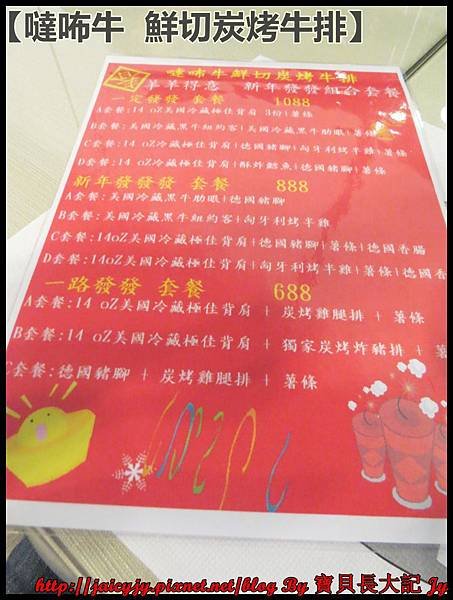 【噠咘牛 鮮切炭烤牛排】
噠咘牛鮮切炭烤牛排
羊羊得意 新年發發組合套餐
一定發發 套餐 1088
A套餐:14 oZ美國冷藏極佳背肩 3份|薯條
B套餐:美國冷藏黑牛紐約客|美國冷藏黑牛肋眼|薯條
C套餐:14 oZ美國冷藏極佳背肩|德國豬腳|匈牙利烤半雞|薯條
D套餐:14 oZ美國冷藏極佳背肩|酥炸鱈魚|德國豬腳|薯條
新年發發發 套餐 888
A套餐:美國冷藏黑牛肋眼|德國豬腳
B套餐:美國冷藏黑牛紐約客|匈牙利烤半雞
C套餐:14oZ美國冷藏極佳背肩|德國豬腳|薯條|德國香腸
D套餐:14oZ美國冷藏極佳背肩|匈牙利烤半雞|薯條|德國香
一路發發 套餐 688
A套餐:14 oZ美國冷藏極佳背肩 + 炭烤雞腿排 + 薯條
B套餐:14 oZ美國冷藏極佳背肩 + 獨家炭烤炸豬排 + 薯
C套餐:德國豬腳 + 炭烤雞腿排 + 薯條
http://jaicyjy.pixnet.net/blog By 寶貝長大記 Jy